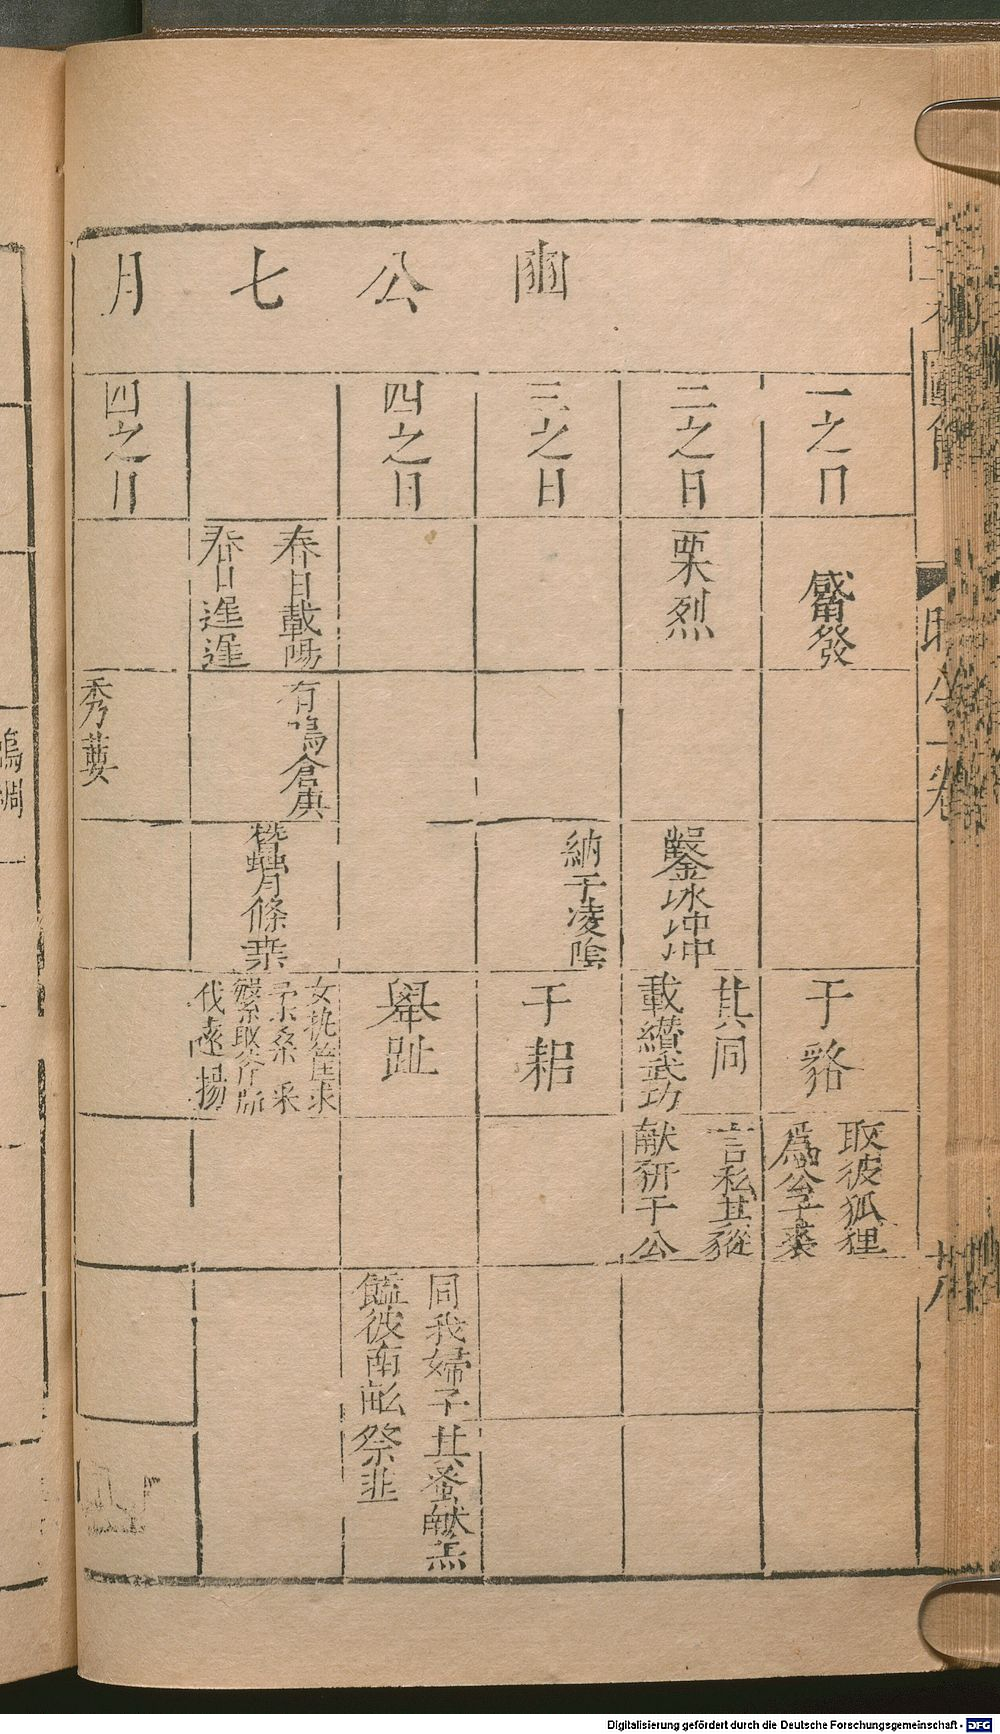 豳公七月
一之日
觱發
于貉
取彼狐狸
爲公子裘
二之日
栗烈
鑿冰冲冲
其同
載纘武功
言私其豵
献豜于公
三之日
納于凌陰
于耜
四之日
舉趾
同我婦子其蚤献羔
饁彼南畝祭韭
春日載陽
春日遲遲
有鳴倉庚
蠶月條桒
女执筐求
柔桑采
蘩取斧斨
伐遠揚
四之日
秀葽
鳴蜩
Digitalisierung gefördert durch die Deutsche Forschungsgemeinschaft - DFG